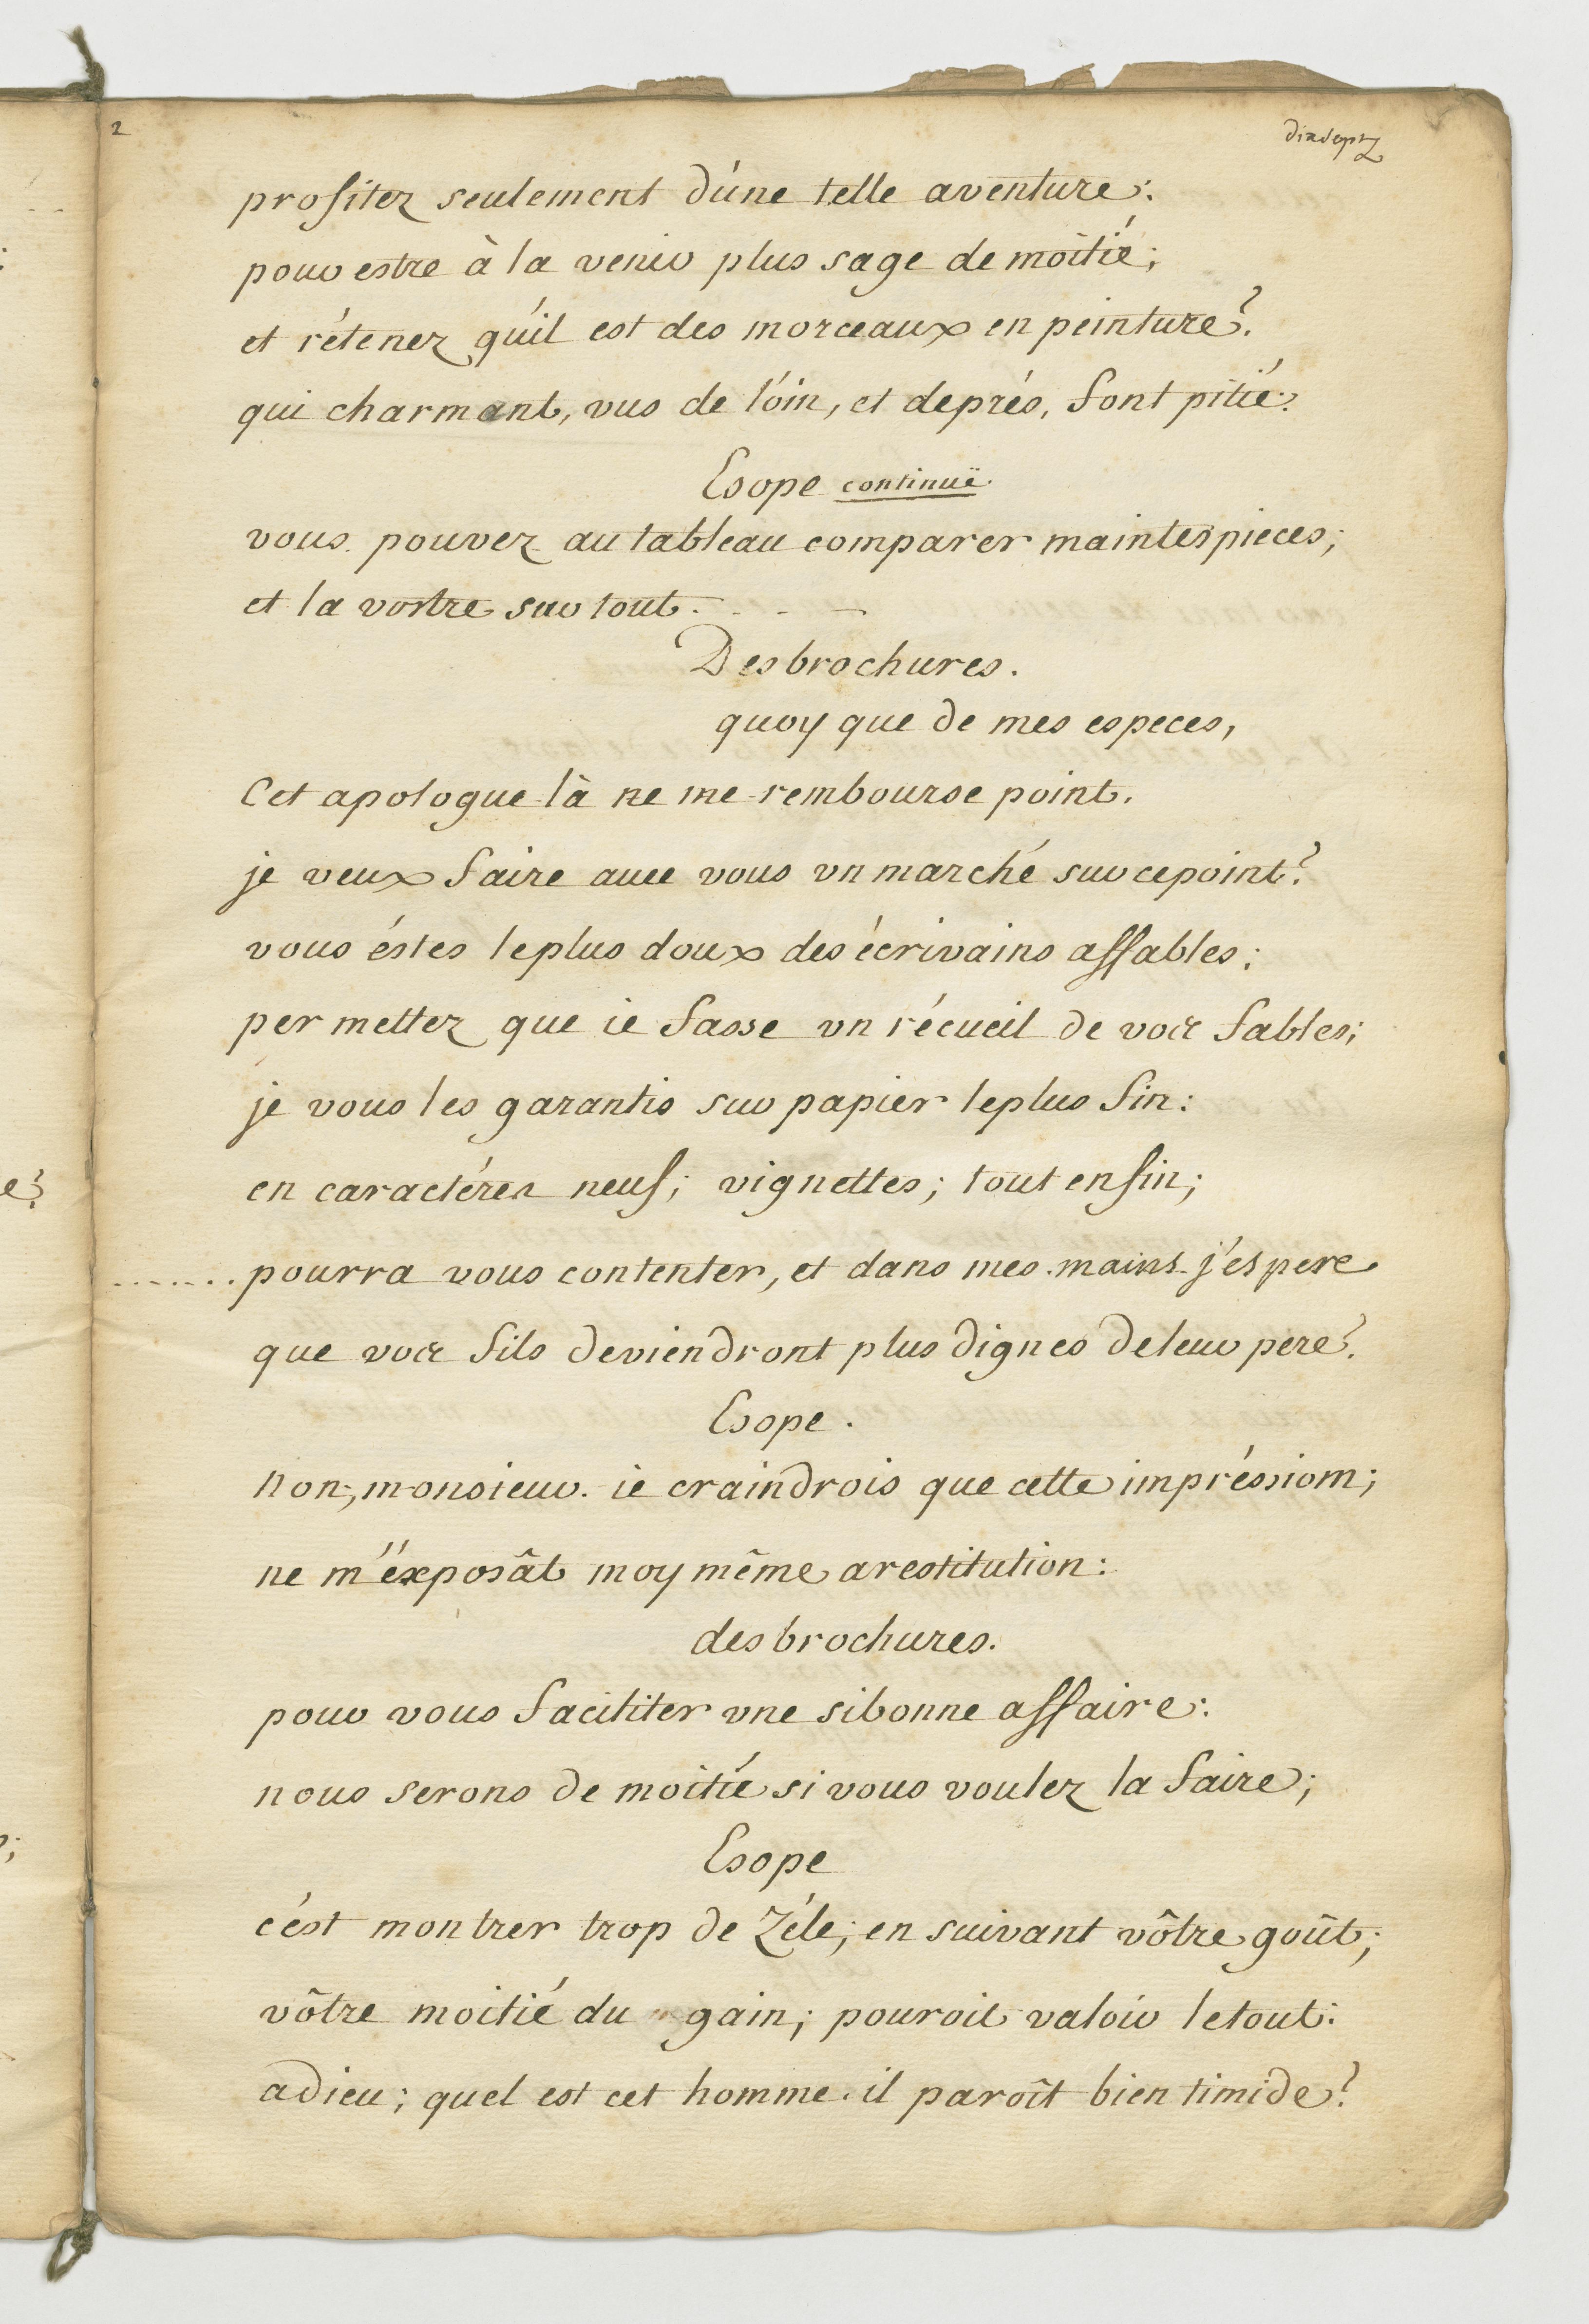 2
dixsept
profitez seulement d'une telle aventure:
pour estre à la venir plus sage de moitié;
et rétenez qu'il est des morceaux en peinture?
qui charmant, vus de l'oin, et deprés, font pitié:
Esope continuë.
vous pouvez au tableau comparer maintes pieces;
et la vostre sur tout. - - - -
Desbrochures.
quoy que de mes especes,
Cet apologue là ne me rembourse point.
je veux faire avec vous vn marché sur ce point?
vous éstes le plus doux des écrivains affables;
per mettez que ie fasse vn récueil de vos fables;
je vous les garantis sur papier le plus fin:
en caractéres neuf; vignettes; tout enfin;
....... pourra vous contenter, et dans mes mains j'éspere
que vos fils deviendront plus dignes de leur pere?
Esope.
Non, monsieur. ie craindrois que cette impréssion;
ne m'éxposât moy même a restitution:
des brochures.
pour vous faciliter vne si bonne affaire:
nous serons de moitié si vous voulez la faire;
Esope
c'ést montrer trop de Zéle; en suivant vôtre goût;
vôtre moitié du gain; pouroit valoir le tout:
adieu; quel est cet homme. il paroît bien timide?
e?
;